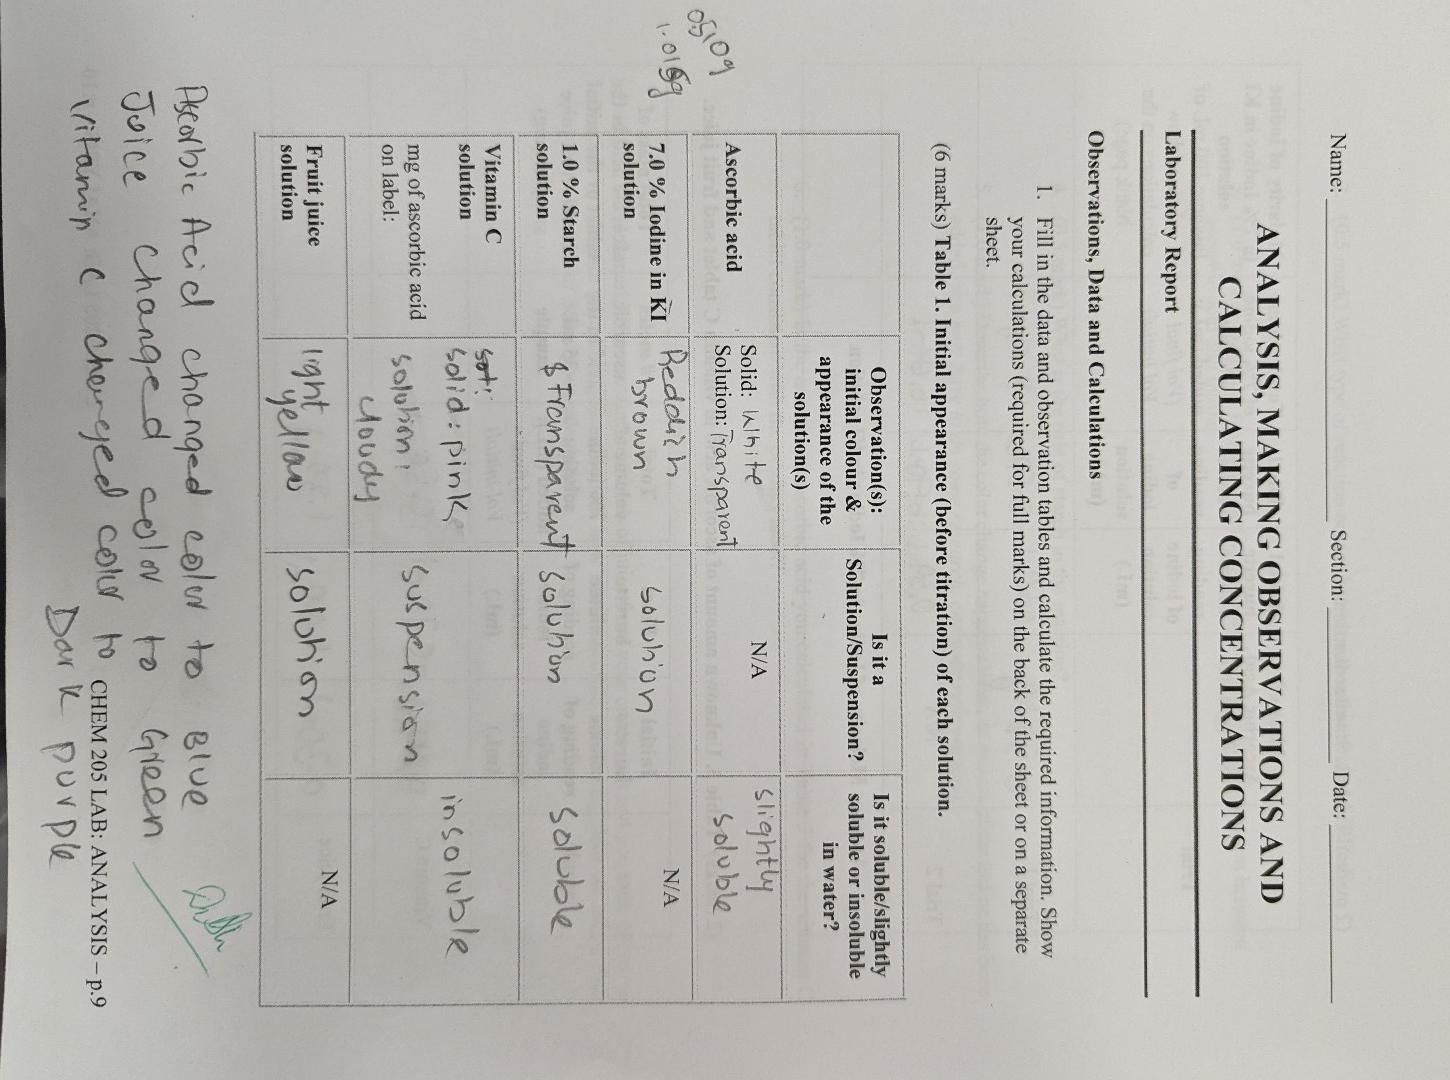 Name: Section: Date:
ANALYSIS, MAKING OBSERVATIONS AND
CALCULATING CONCENTRATIONS
Laboratory Report
Observations, Data and Calculations
1. Fill in the data and observation tables and calculate the required information. Show
your calculations (required for full marks) on the back of the sheet or on a separate
sheet.
(6 marks) Table 1. Initial appearance (before titration) of each solution.
Observation(s):
initial colour &
appearance of the
solution(s)
Is it a
Solution/Suspension?
Is it soluble/slightly
soluble or insoluble
in water?
Ascorbic acid
Solid: White
Solution: Transparent
N/A
slightly
soluble
7.0 % Iodine in KI
solution
Reddish
brown
solution
N/A
1.0 % Starch
solution
Transparent
solution
soluble
Vitamin C
solution
mg of ascorbic acid
on label:
solid: pink
solution:
cloudy
suspension
insoluble
Fruit juice
solution
light
yellow
solution
N/A
Ascorbic Acid changed color to Blue
Juice changed color to Green
Vitamin C changed color to
Dark purple
CHEM 205 LAB: ANALYSIS – p.9